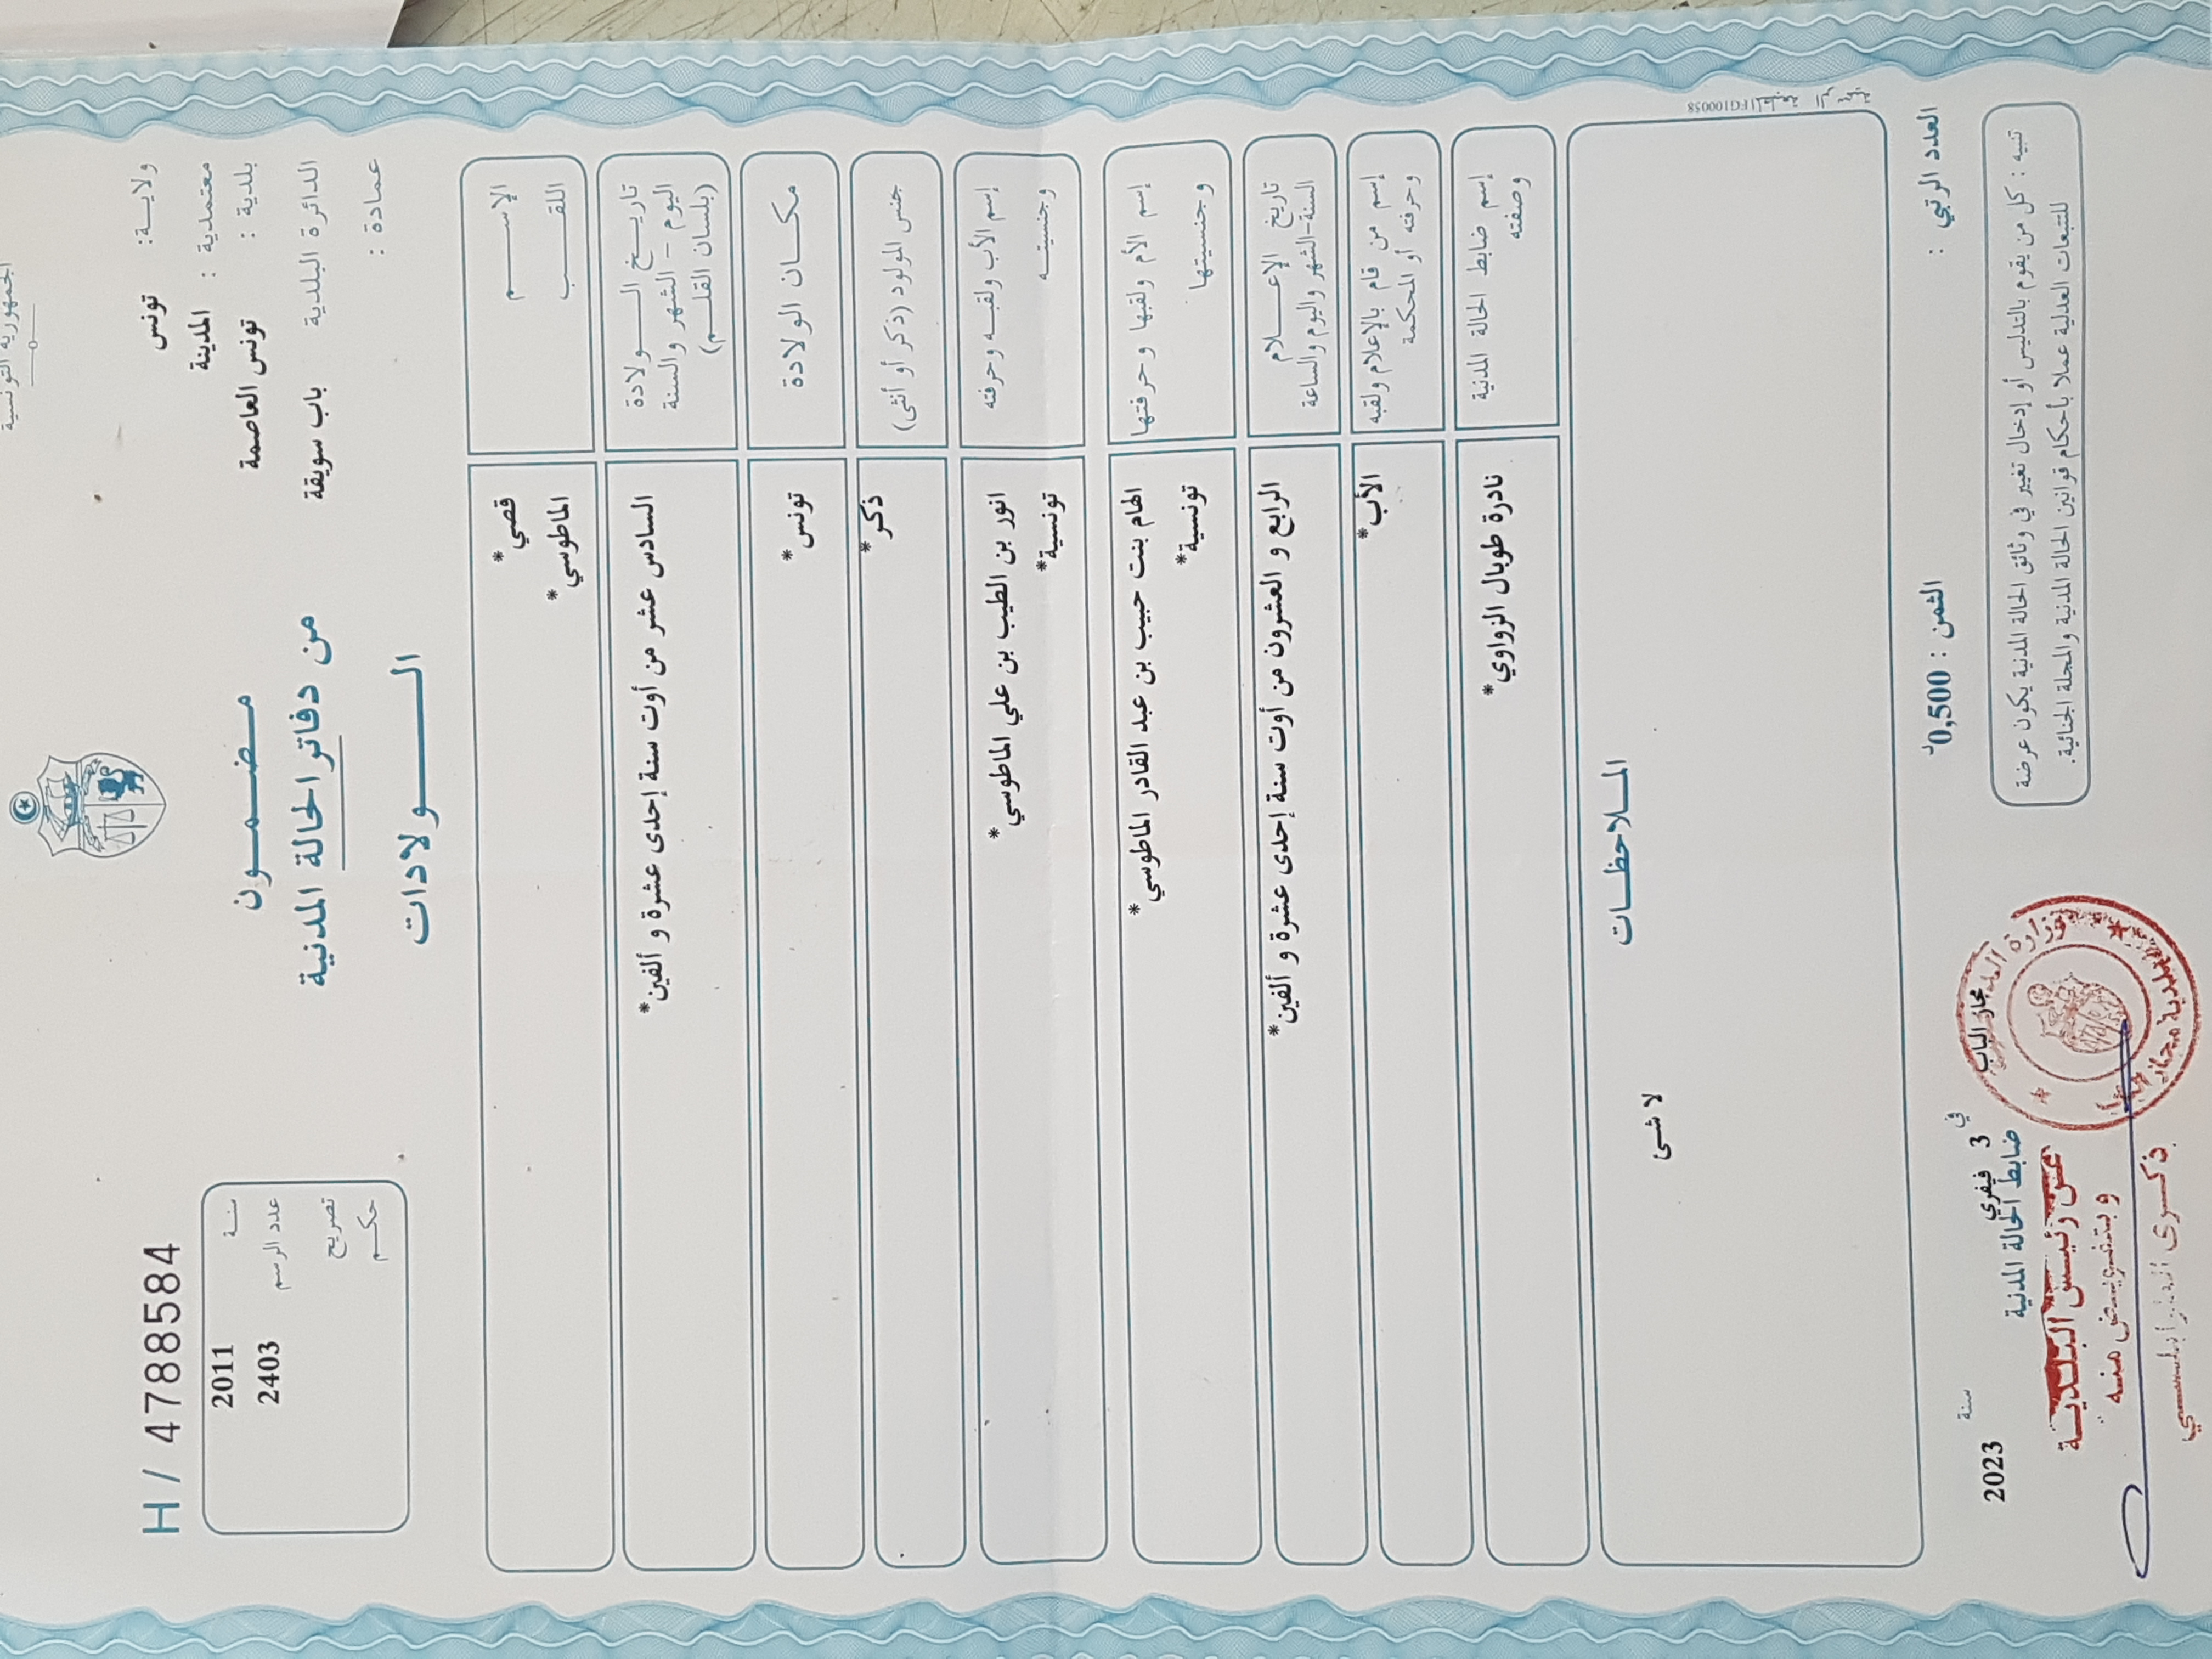 الجمهورية التونسية
ولاية: تونس
معتمدية : المدينة
بلدية : تونس العاصمة
الدائرة البلدية باب سويقة
عمادة :
مضمون
من دفاتر الحالة المدنية
الولادات
H / 4788584
سنة 2011
عدد الرسم 2403
تصريح
حكم
الإسم قصي*
اللقب الماطوسي*
تاريخ الولادة
اليوم - الشهر والسنة
(بلسان القلم)
السادس عشر من أوت سنة إحدى عشرة و ألفين*
مكان الولادة تونس*
جنس المولود (ذكر أو أنثى) ذكر*
إسم الأب ولقبه وحرفته انور بن الطيب بن علي الماطوسي*
وجنسيته تونسية*
إسم الأم ولقبها وحرفتها الهام بنت حبيب بن عبد القادر الماطوسي*
وجنسيتها تونسية*
تاريخ الإعلام
السنة-الشهر واليوم والساعة
الرابع و العشرون من أوت سنة إحدى عشرة و ألفين*
إسم من قام بالإعلام ولقبه
وحرفته أو المحكمة
الأب*
إسم ضابط الحالة المدنية
وصفته
نادرة طوبال الزواوي*
الملاحظات
لا شئ
FG100058
العدد الرتبي :
الثمن : 0,500د
مجاز الباب في 3 فيفري سنة 2023
ضابط الحالة المدنية
تنبيه : كل من يقوم بالتدليس أو إدخال تغيير في وثائق الحالة المدنية يكون عرضة
للتتبعات العدلية عملا بأحكام قوانين الحالة المدنية والمجلة الجنائية.
عن رئيس البلدية
وبتفويض منه
ذكرى
بلدية مجاز الباب